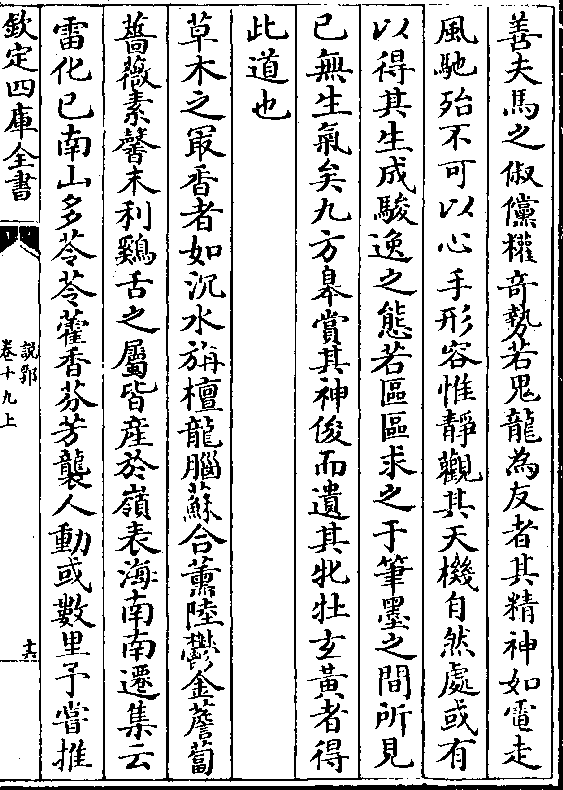 善夫馬之俶儻權奇勢若鬼龍為友者其精神如電走
風馳殆不可以心手形容惟靜觀其天機自然處或有
以得其生成駿逸之態若區區求之于筆墨之間所見
已無生氣矣九方臯賞其神俊而遺其牝牡玄黄者得
此道也
草木之最香者如沉水旃檀龍腦蘇合薰陸鬱金薝蔔
薔薇素馨末利鷄舌之屬皆産於嶺表海南南遷集云
雷化已南山多苓苓藿香芬芳襲人動或數里予嘗推
欽定四庫全書
説郛
卷十九上
十六